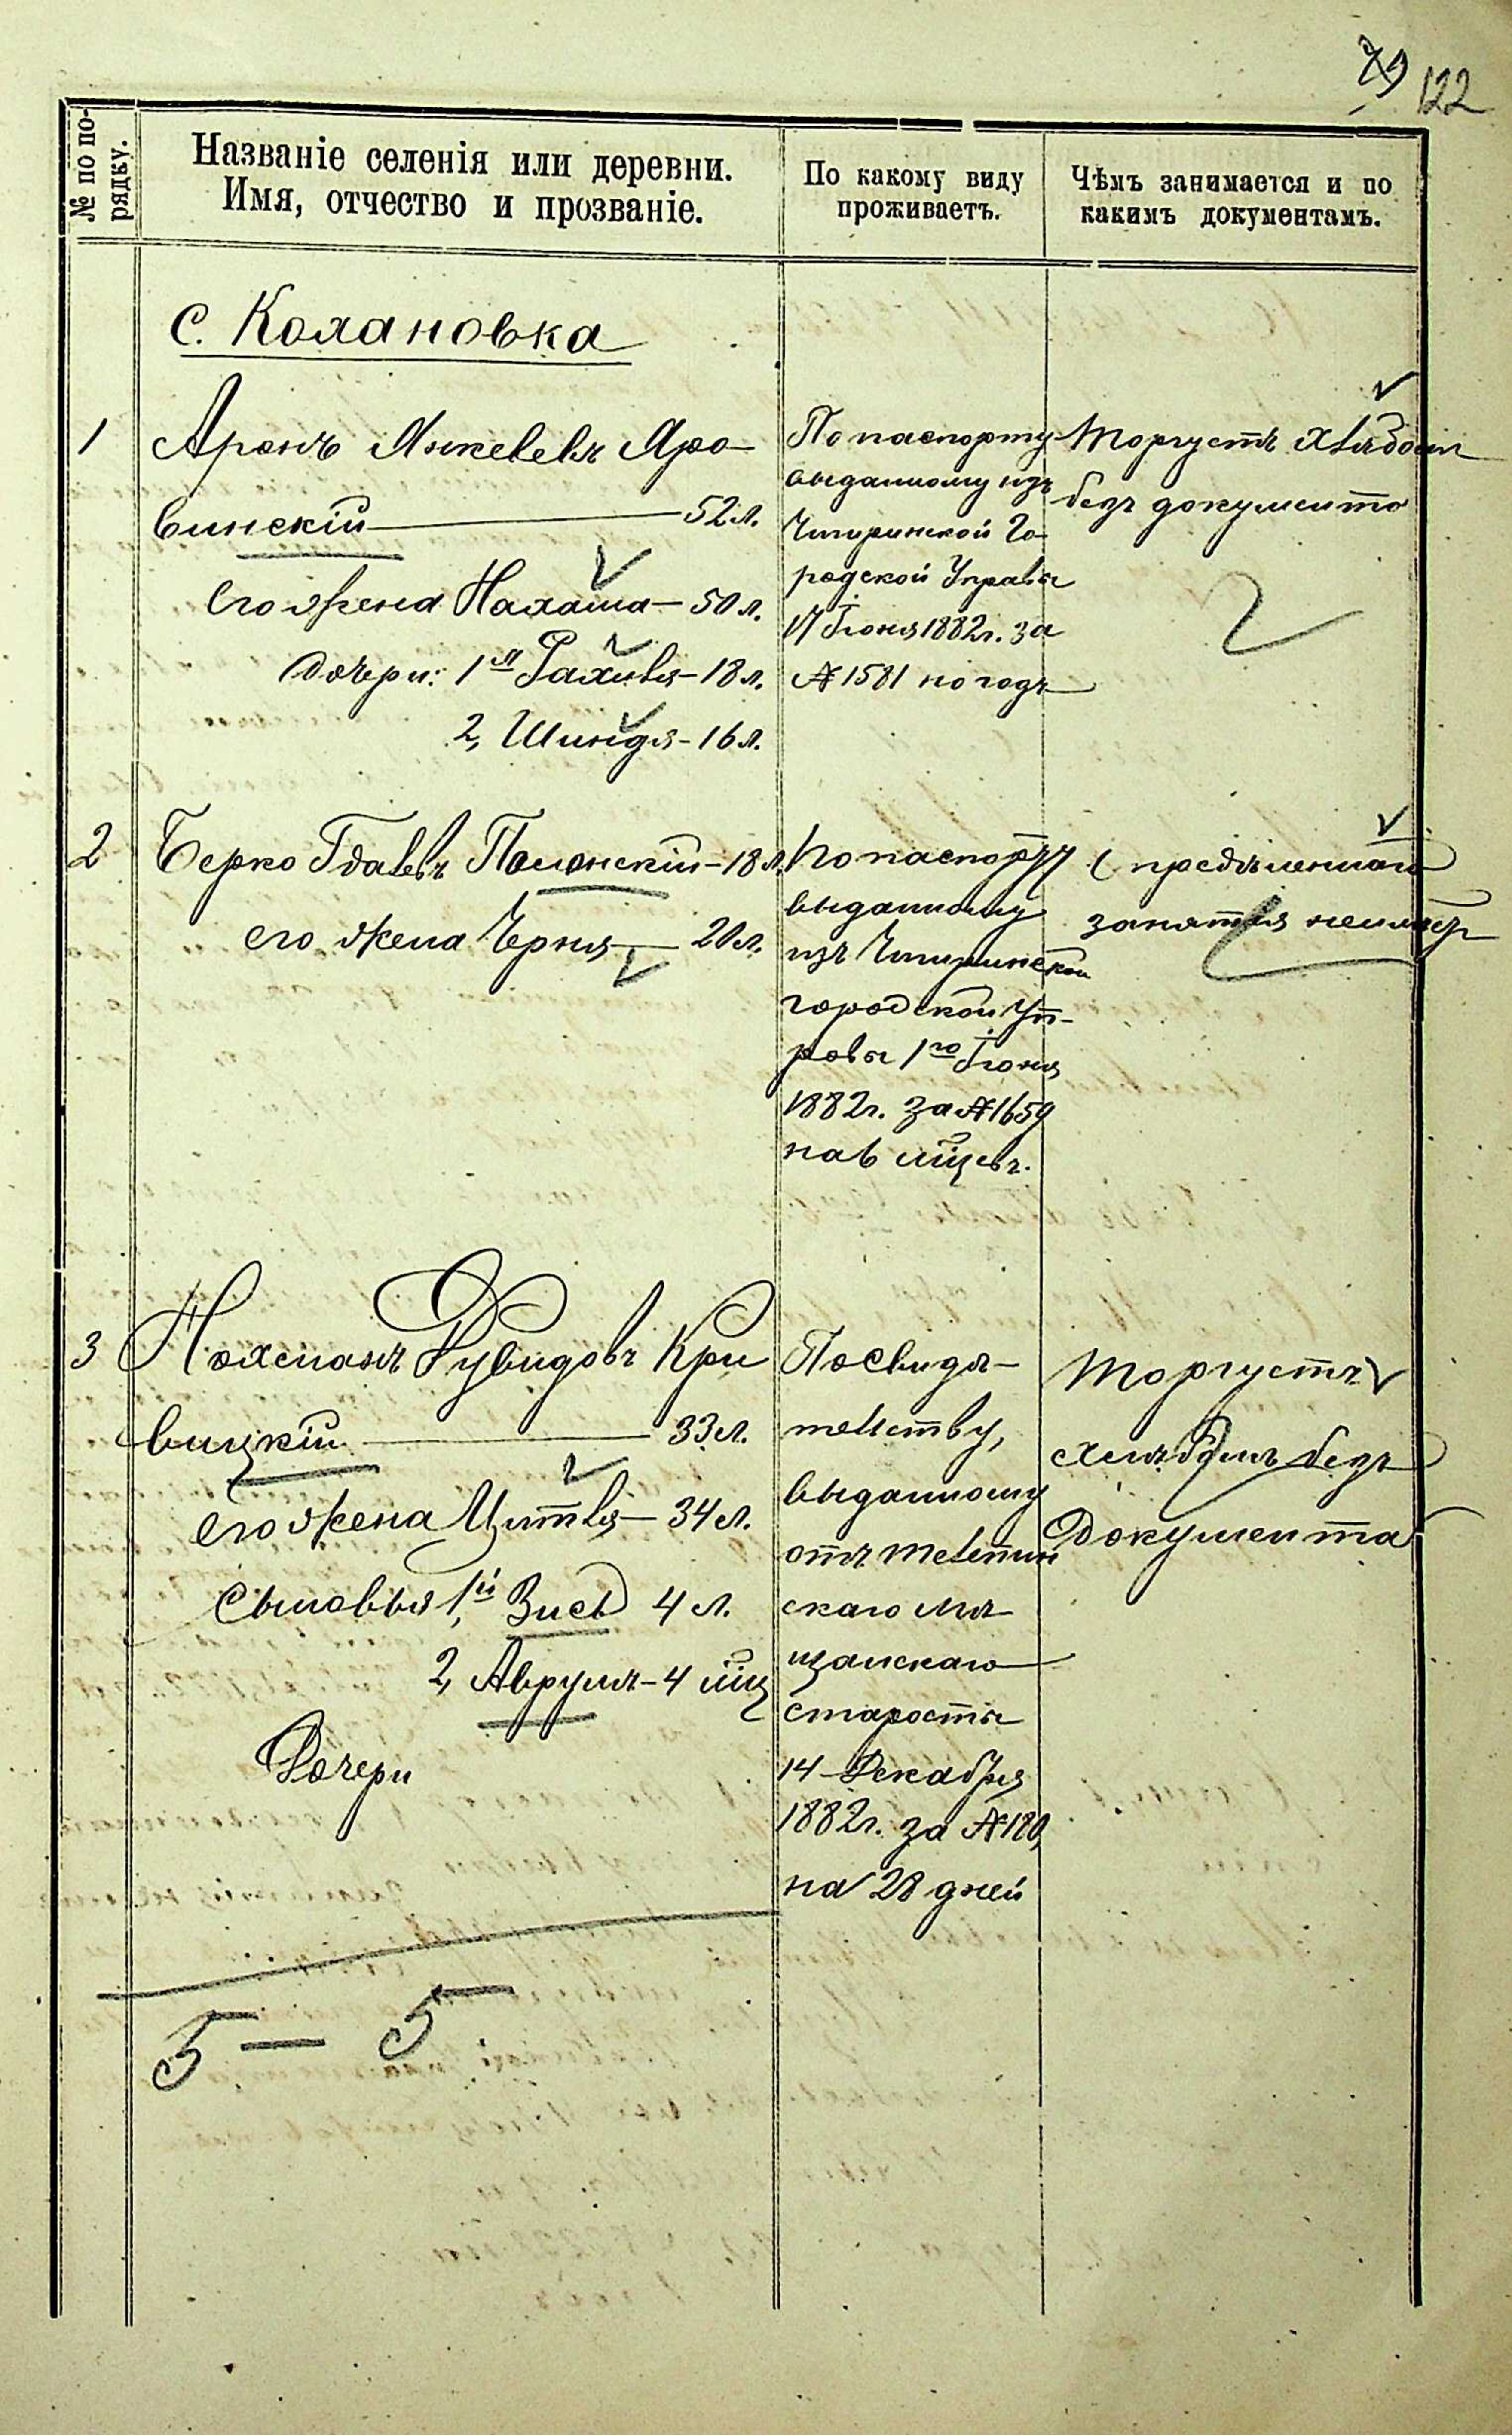 79 122
№ по по-
рядку.
Названіе селенія или деревни.
Имя, отчество и прозваніе.
По какому виду
проживаетъ.
Чѣмъ занимается и по
какимъ документамъ.
с. Колановка
1
Аронъ Янкелевъ Яро-
винскій — 52 л.
его жена Халаша — 50 л.
дочери: 1я Рахиля - 18 л.
2, Шиндя - 16 л.
По паспорту
выданному изъ
Чигиринской Го-
родской Управы
17 Іюня 1882 г. за
№ 1581 на годъ
Торгуетъ хлѣбомъ
безъ документа
2
Берко Гдалевъ Полонскій - 18 л.
его жена Черня — 20 л.
По паспорту
выданному
изъ Чигиринской
городской Уп-
равы 1го Іюня
1882 г. за № 1659
на 6 мѣсяц.
Опредѣленнаго
занятія неимѣетъ
3
Нохеманъ Рувидовъ Кри
вицкій — 33 л.
его жена Цитля — 34 л.
Сыновья 1й, Зись 4 л.
2, Аврумъ - 4 мѣц
Дочери
По свидѣ-
тельству,
выданному
отъ Телепин
скаго мѣ-
щанскаго
старосты
14 Декабря
1882 г. за № 180,
на 28 дней
Торгуетъ
хлѣбомъ безъ
документа
5 — 5